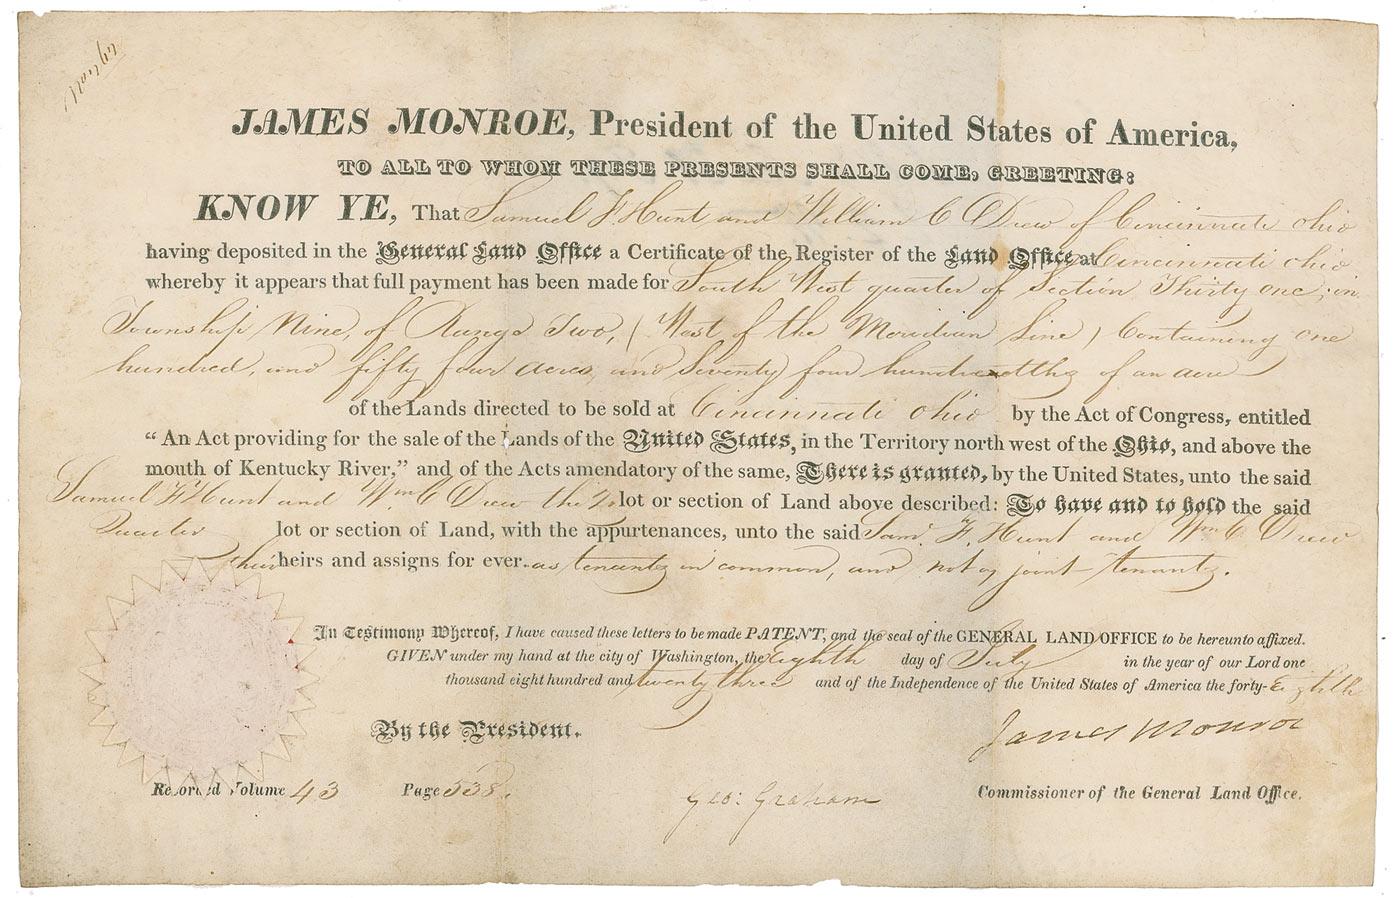 JAMES MONROE, President of the United States of America,
TO ALL TO WHOM THESE PRESENTS SHALL COME, GREETING:
KNOW YE, That Samuel F Hunt and William C Drew of Cincinnati Ohio
having deposited in the General Land Office a Certificate of the Register of the Land Office at Cincinnati Ohio
whereby it appears that full payment has been made for South West quarter of Section Thirty one, in
Township Nine, of Range Two, (West of the Meridian Line) Containing one
hundred, and fifty four acres, and Seventy four hundredths of an acre
of the Lands directed to be sold at Cincinnati Ohio by the Act of Congress, entitled
“An Act providing for the sale of the Lands of the United States, in the Territory north west of the Ohio, and above the
mouth of Kentucky River,” and of the Acts amendatory of the same, There is granted, by the United States, unto the said
Samuel F Hunt and Wm C Drew the lot or section of Land above described: To have and to hold the said
Quarter lot or section of Land, with the appurtenances, unto the said Sam. F. Hunt and Wm C Drew
their heirs and assigns for ever. as tenants in common, and not as joint-tenants.
In Testimony Whereof, I have caused these letters to be made PATENT, and the seal of the GENERAL LAND OFFICE to be hereunto affixed.
GIVEN under my hand at the city of Washington, the Eighth day of July in the year of our Lord one
thousand eight hundred and twenty three and of the Independence of the United States of America the forty-Eighth
By the President. James Monroe
Recorded Volume 43 Page 538. Geo: Graham Commissioner of the General Land Office.